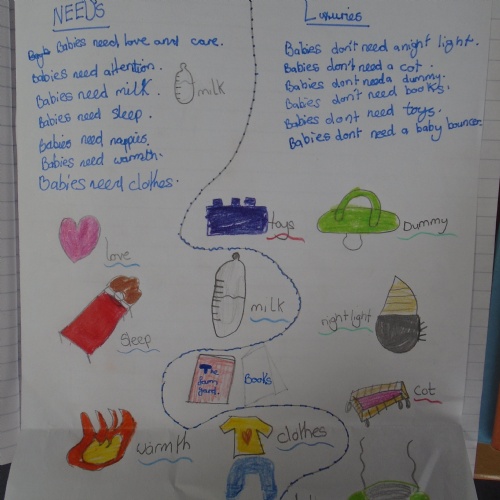 NEEDS
Babies need love and care.
Babies need attention.
Babies need milk.
Babies need sleep.
Babies need nappies.
Babies need warmth.
Babies need clothes.
milk
Luxuries
Babies don't need a night light.
Babies don't need a cot.
Babies dont need a dummy.
Babies don't need books.
Babies dont need toys.
Babies dont need a baby bouncer.
love
toys
Dummy
Sleep
milk
nightlight
The
Barn
Yard.
Books
cot
warmth
clothes